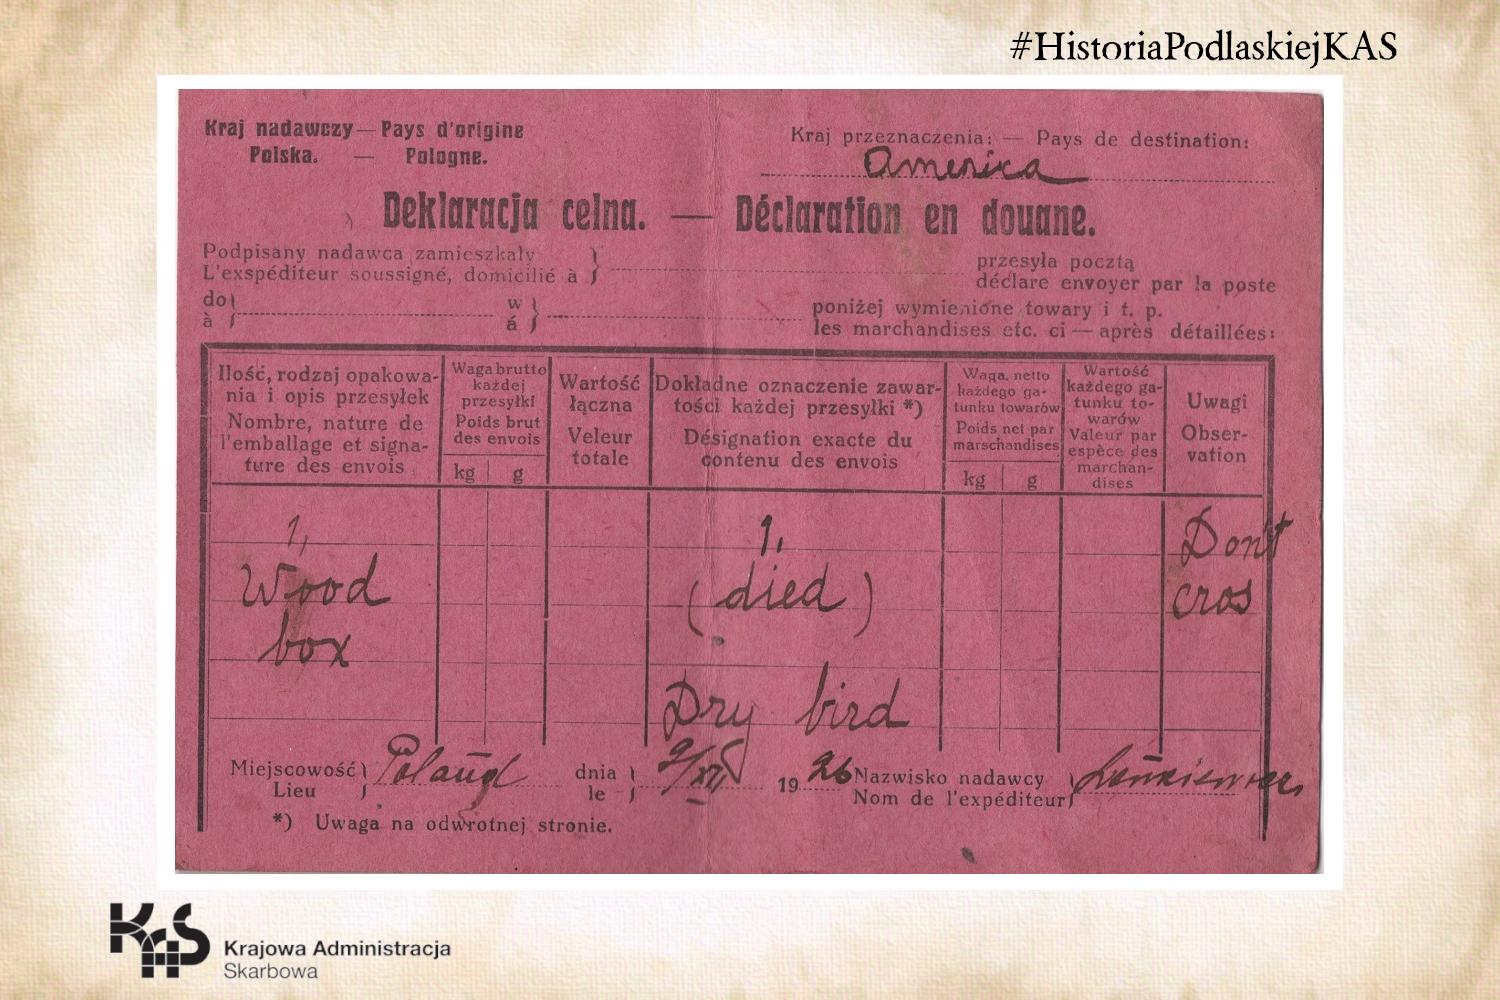 #HistoriaPodlaskiejKAS
Kraj nadawczy — Pays d'origine
Polska. — Pologne.
Kraj przeznaczenia: — Pays de destination:
America
Deklaracja celna. — Déclaration en douane.
Podpisany nadawca zamieszkały
L'exspéditeur soussigné, domicilié à
przesyła pocztą
déclare envoyer par la poste
do
à
w
á
poniżej wymienione towary i t. p.
les marchandises etc. ci — après détaillées:
Ilość, rodzaj opakowa-
nia i opis przesyłek
Nombre, nature de
l'emballage et signa-
ture des envois
Waga brutto
każdej
przesyłki
Poids brut
des envois
kg g
Wartość
łączna
Veleur
totale
Dokładne oznaczenie zawar-
tości każdej przesyłki *)
Désignation exacte du
contenu des envois
Waga netto
każdego ga-
tunku towarów
Poids net par
marschandises
kg g
Wartość
każdego ga-
tunku to-
warów
Valeur par
espèce des
marchan-
dises
Uwagi
Obser-
vation
1,
Wood
box
1,
(died)
Dry bird
Dont
cros
Miejscowość
Lieu
Poland
dnia
le
9/XII 1926
Nazwisko nadawcy
Nom de l'expéditeur
*) Uwaga na odwrotnej stronie.
KAS
Krajowa Administracja
Skarbowa